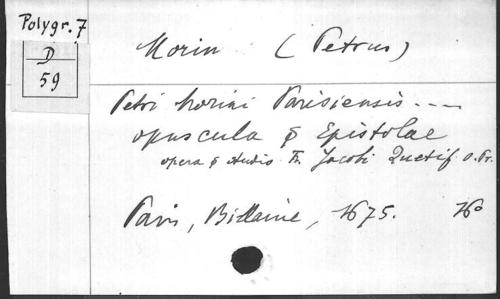 Polygr. 7
D
59
Morin (Petrus)
Petri Morini Parisiensis ---
opuscula & Epistolae
opera & studio Fr. Jacobi Quetif. O. Pr.
Paris, Billaine, 1675. 16o